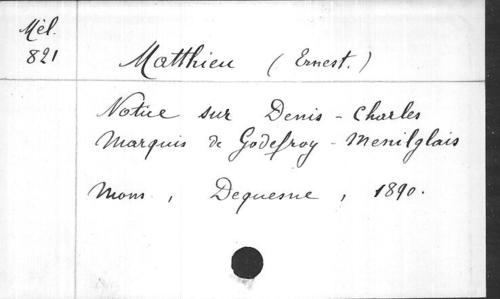 Mél.
821
Matthieu (Ernest.)
Notice sur Denis - Charles
Marquis de Godefroy - Menilglais
Mons, Dequesne, 1890.